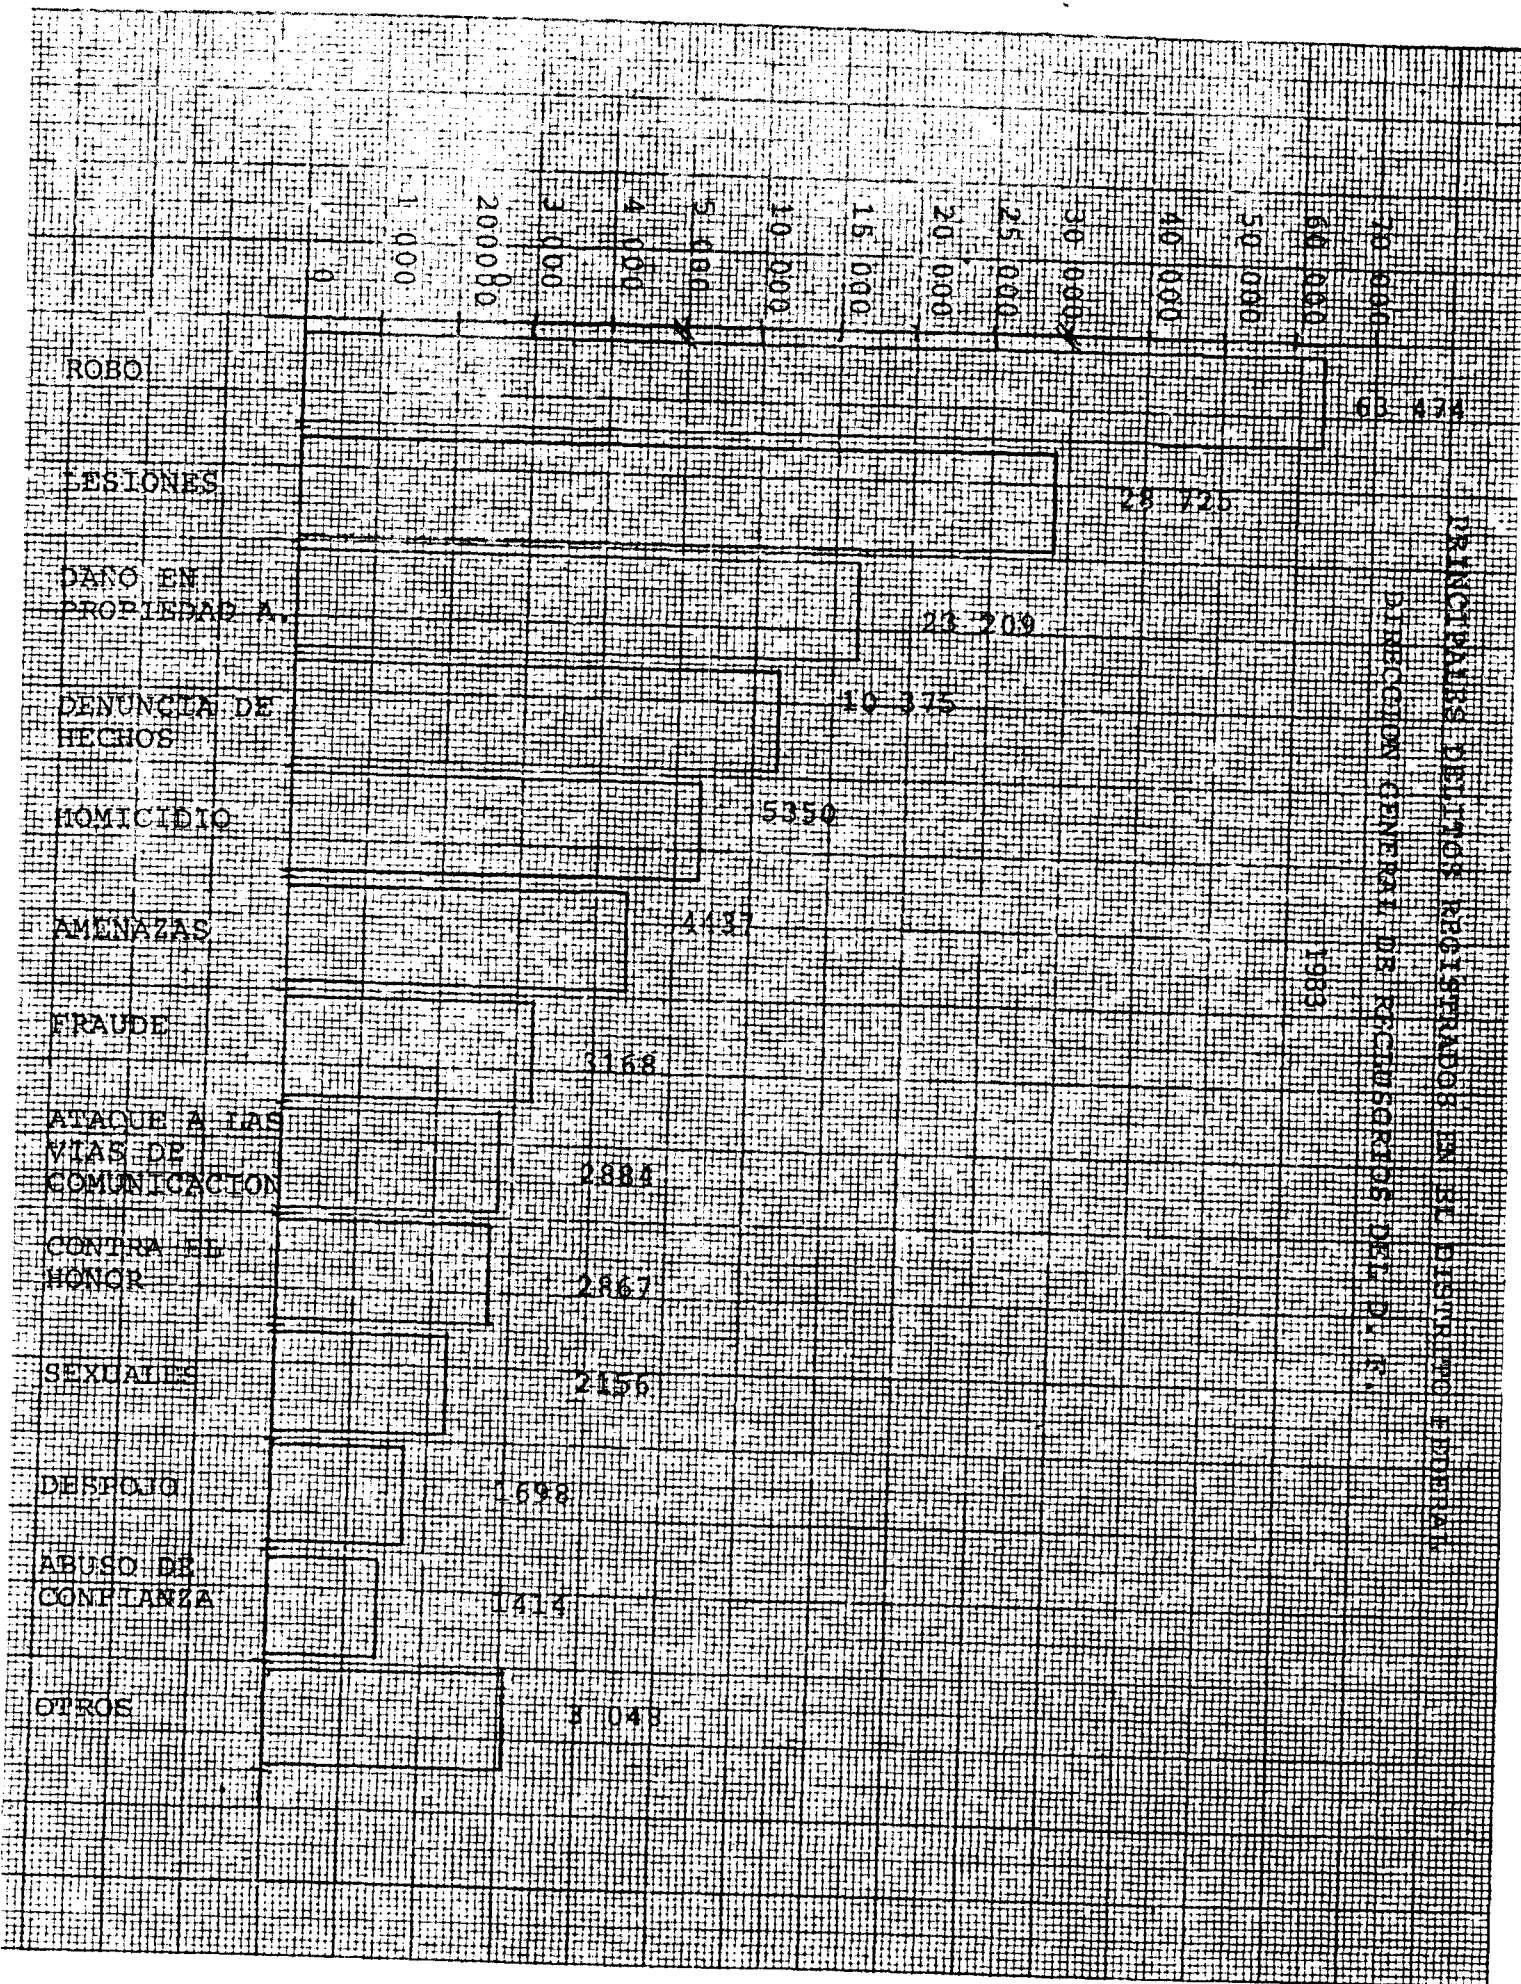 PRINCIPALES DELITOS REGISTRADOS EN EL DISTRITO FEDERAL
DIRECCION GENERAL DE RECLUSORIOS DEL D. F.
1983
0
1 000
20000
3 000
4 000
5 000
10 000
15 000
20 000
25 000
30 000
40 000
50 000
60 000
70 000
ROBO
63 474
LESIONES
28 726
DAÑO EN
PROPIEDAD A.
23 209
DENUNCIA DE
HECHOS
10 375
HOMICIDIO
5350
AMENAZAS
4437
FRAUDE
3168
ATAQUE A LAS
VIAS DE
COMUNICACION
2884
CONTRA EL
HONOR
2867
SEXUALES
2156
DESPOJO
1698
ABUSO DE
CONFIANZA
1414
OTROS
3 048